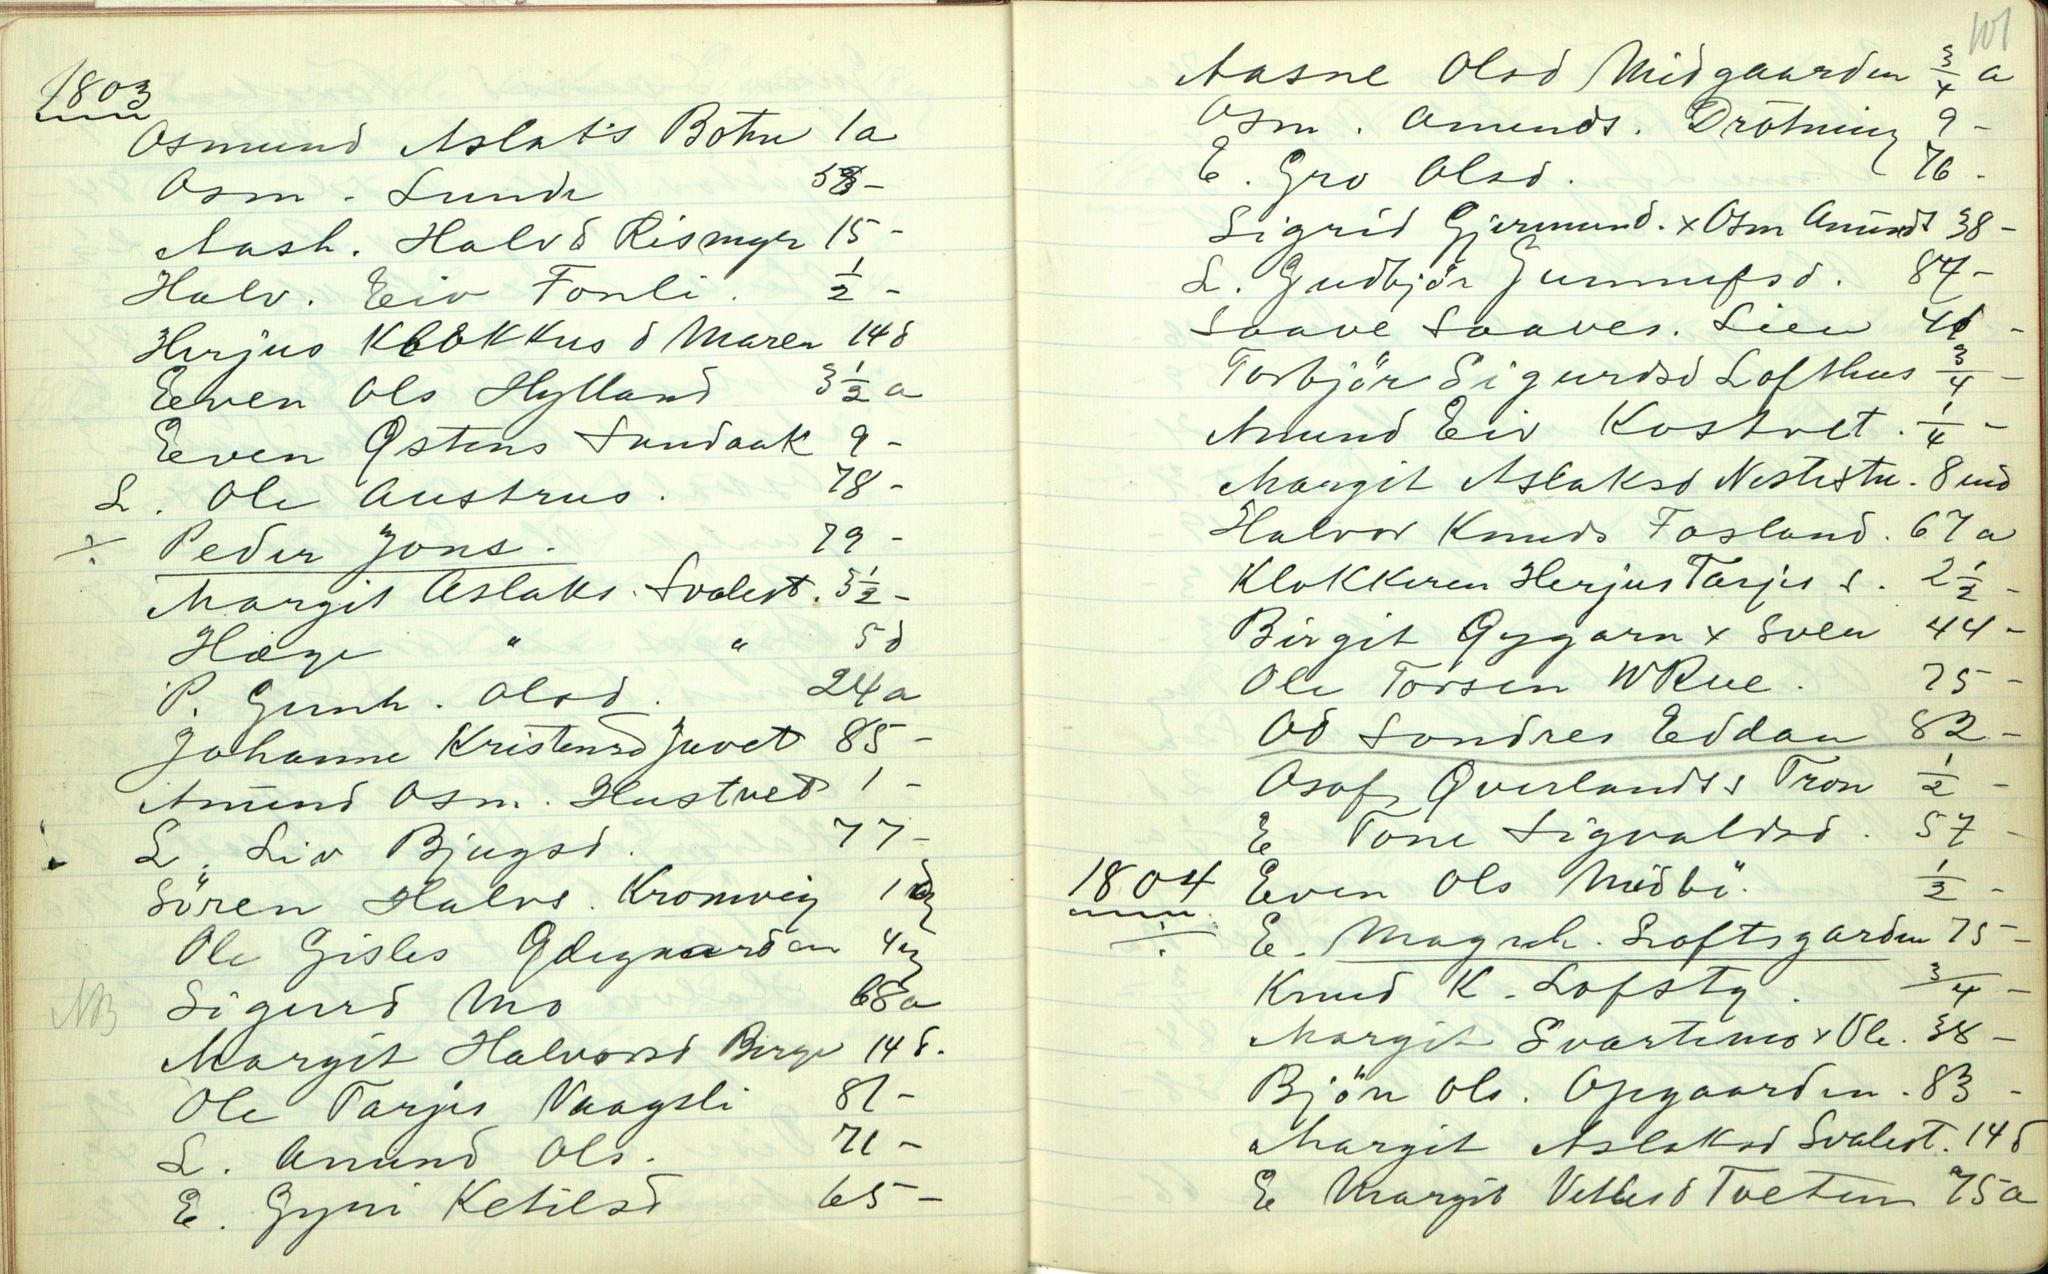 1803
Osmund Aslaks Botn 1a
Osm. Lunde 58-
Aash. Halvd Rismyr 15-
Halv. Eiv Fonli. ½-
Herjus Klokkus d Maren 14d
Even Ols Hylland 3½ a
Even Østens Sundaak 9-
L. Ole Austrus. 78-
÷ Peder Jons. 79-
Margit Aslaks. Svalest. 3½-
Hæge " " 5d
P. Gunh. Olsd. 24a
Johanne Kristensd Juvet 85-
Amund Osm. Hustvet 1-
L. Liv Bjugsd. 77-
Sören Halvs. Kromvig 1
Ole Gisles Ødegaarden 4
NB Sigurd Mo 68a
Margit Halvorsd Berge 14d.
Ole Tarjes Vaagsli 81-
L. Anund Ols. 71-
E. Gyri Ketilsd 65-
101
Aasne Olsd Midgaarden ¾ a
Osm. Amunds. Drotning 9-
E. Gro Olsd. 76-
Sigrid Gjermund. x Osm Amunds 38-
L. Gudbjör Gunnufsd. 87-
Saave Saaves. Lien 41-
Torbjör Sigurdsd Lofthus ¾-
Amund Eiv Kostvet. ¼-
Margit Aslaksd Nestestu. 8 md
Halvor Knuds Fosland. 67a
Klokkeren Herjus Tarjes s. 2½-
Birgit Øygarn x Sven 44-
Ole Torsen WRue. 75-
Od Sondres Eddan 82-
Osof Øverlandss Tron ½-
E Tone Sigvaldsd. 57-
1804 Even Ols Midbö. ½-
÷ E. Magnh. Loftsgarden 75-
Knud K. Loftsg. ¾-
Margit Svartemo x Ole. 38-
Bjön Ols. Opgaarden. 83-
Margit Aslaksd Svalest. 14d
E Margit Vetlesd Tveten 75a